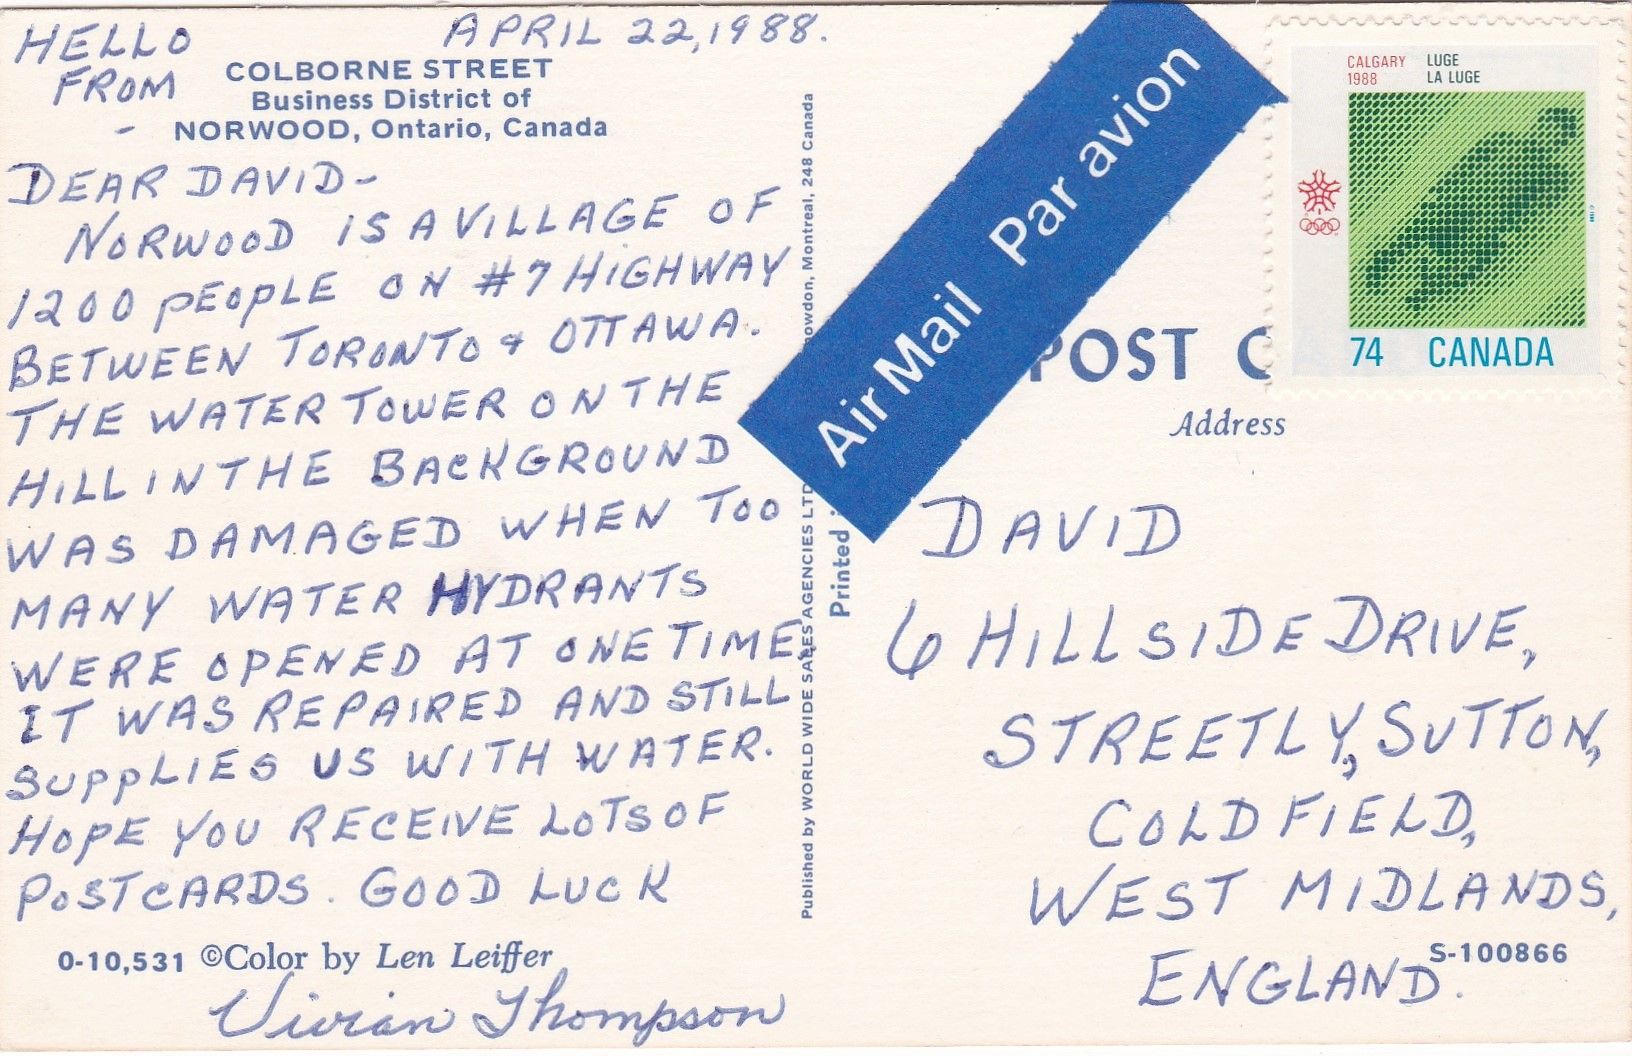 HELLO
APRIL 22, 1988.
FROM
COLBORNE STREET
Business District of
- NORWOOD, Ontario, Canada
DEAR DAVID-
NORWOOD IS A VILLAGE OF
1200 PEOPLE ON #7 HIGHWAY
BETWEEN TORONTO & OTTAWA.
THE WATER TOWER ON THE
HILL IN THE BACKGROUND
WAS DAMAGED WHEN TOO
MANY WATER HYDRANTS
WERE OPENED AT ONE TIME.
IT WAS REPAIRED AND STILL
SUPPLIES US WITH WATER.
HOPE YOU RECEIVE LOTS OF
POSTCARDS. GOOD LUCK
0-10,531 ©Color by Len Leiffer
Vivian Thompson
Published by WORLD WIDE SALES AGENCIES LTD
nowdon, Montreal, 248 Canada
Printed
Air Mail Par avion
CALGARY
1988
LUGE
LA LUGE
74 CANADA
POST C
Address
DAVID
6 HILLSIDE DRIVE,
STREETLY, SUTTON,
COLDFIELD,
WEST MIDLANDS,
S-100866
ENGLAND.